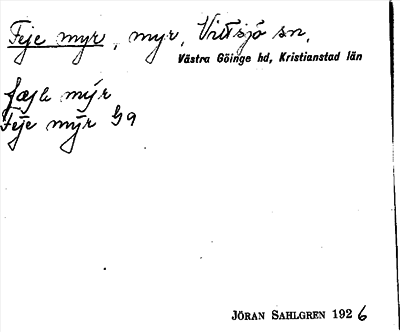 Feje myr, myr, Vittsjö sn,
Västra Göinge hd, Kristianstad län
fæje mýr
Feje myr G9
JÖRAN SAHLGREN 1926